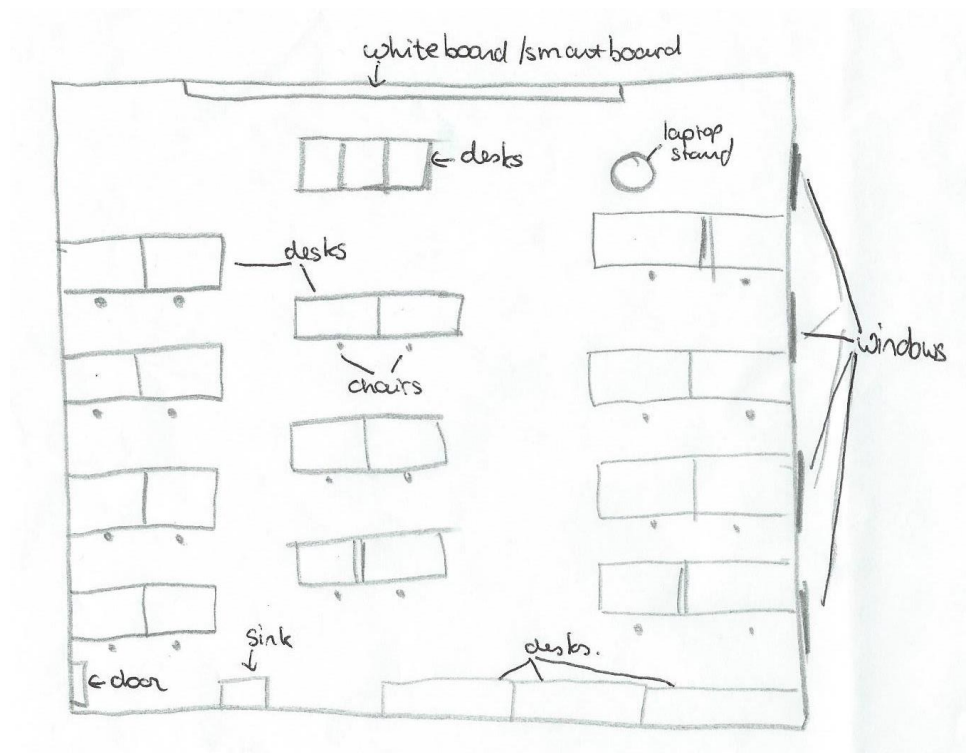 whiteboard/smartboard
desks
laptop
stand
desks
chairs
windows
sink
desks.
door